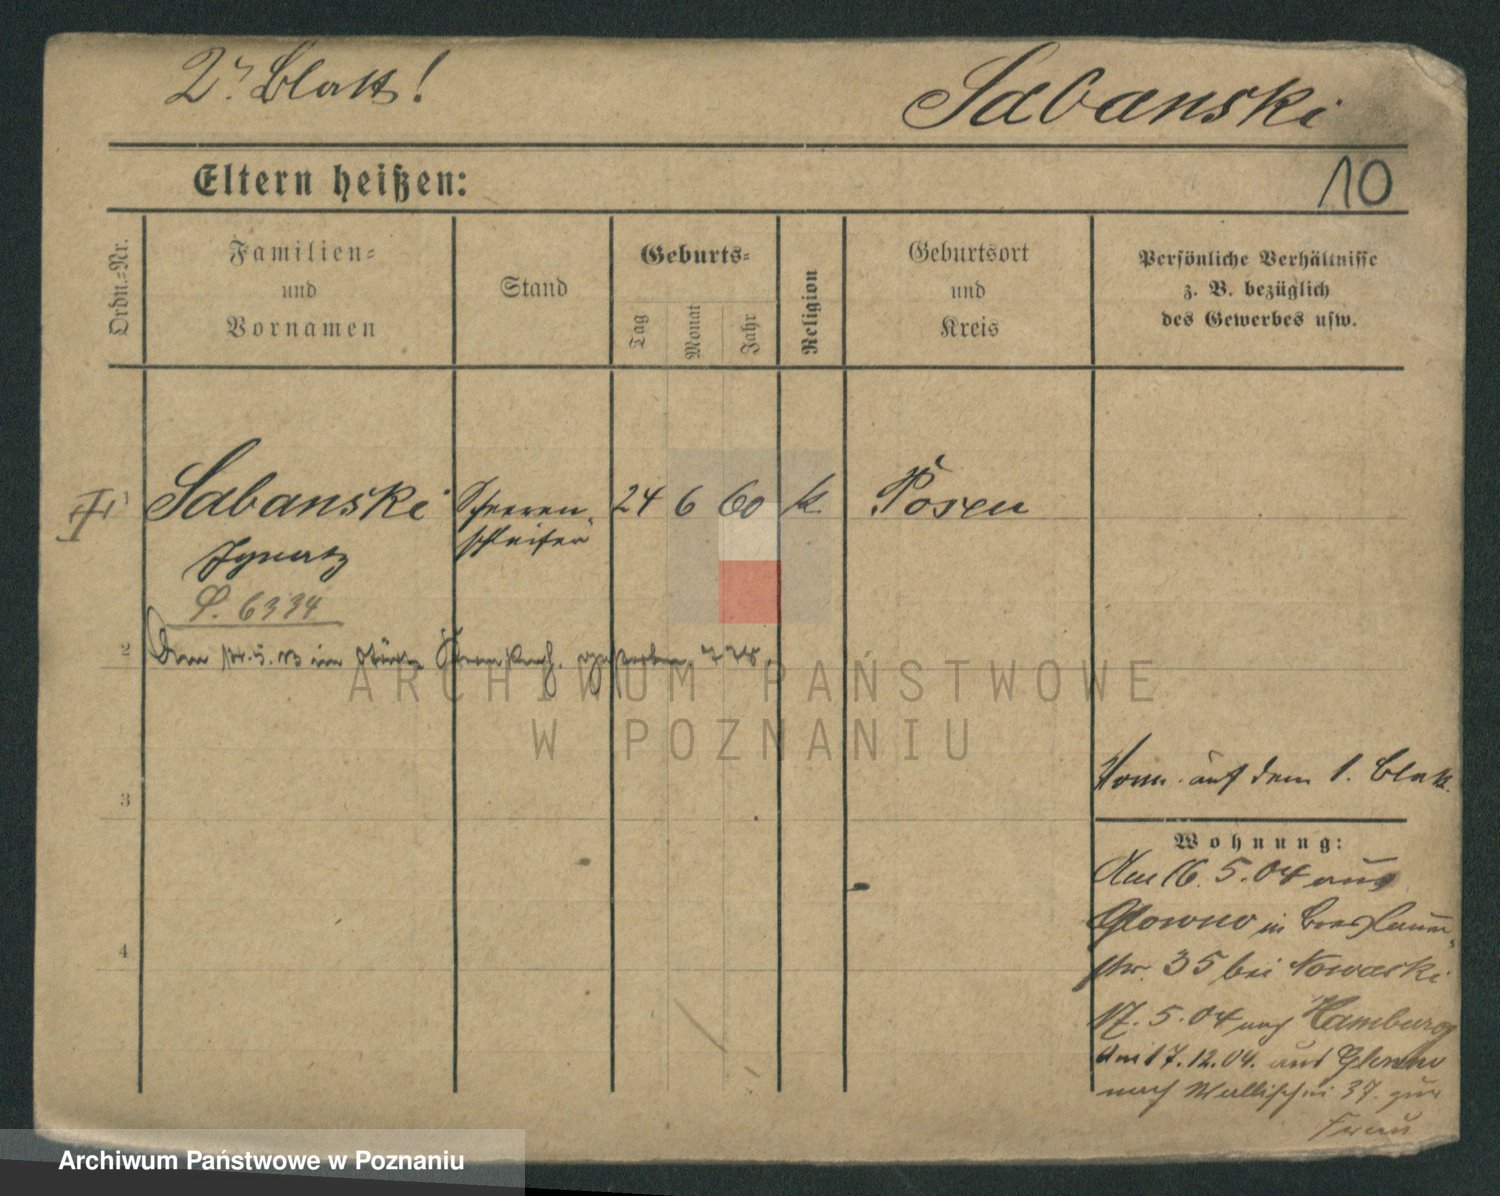 2s Blatt!
Sabanski
Eltern heißen:
10
Ordn.-Nr.
Familien-
und
Vornamen
Stand
Geburts-
Tag
Monat
Jahr
Religion
Geburtsort
und
Kreis
Persönliche Verhältnisse
z. B. bezüglich
des Gewerbes usw.
1
Sabanski
Scheeren-
schleifer
24 6 60 k. Posen
Ignatz
S. 6334
2
Den im gestorben
3
4
auf dem 1. Blatt.
Wohnung:
Am 16.5.04 aus
Glowno in Breslauer-
str. 35 bei Nowacki
17.5.04 nach Hamburg
Am 17.12.04. aus Glowno
nach Wallischei 37. zur
Frau
ARCHIWUM PAŃSTWOWE
W POZNANIU
Archiwum Państwowe w Poznaniu